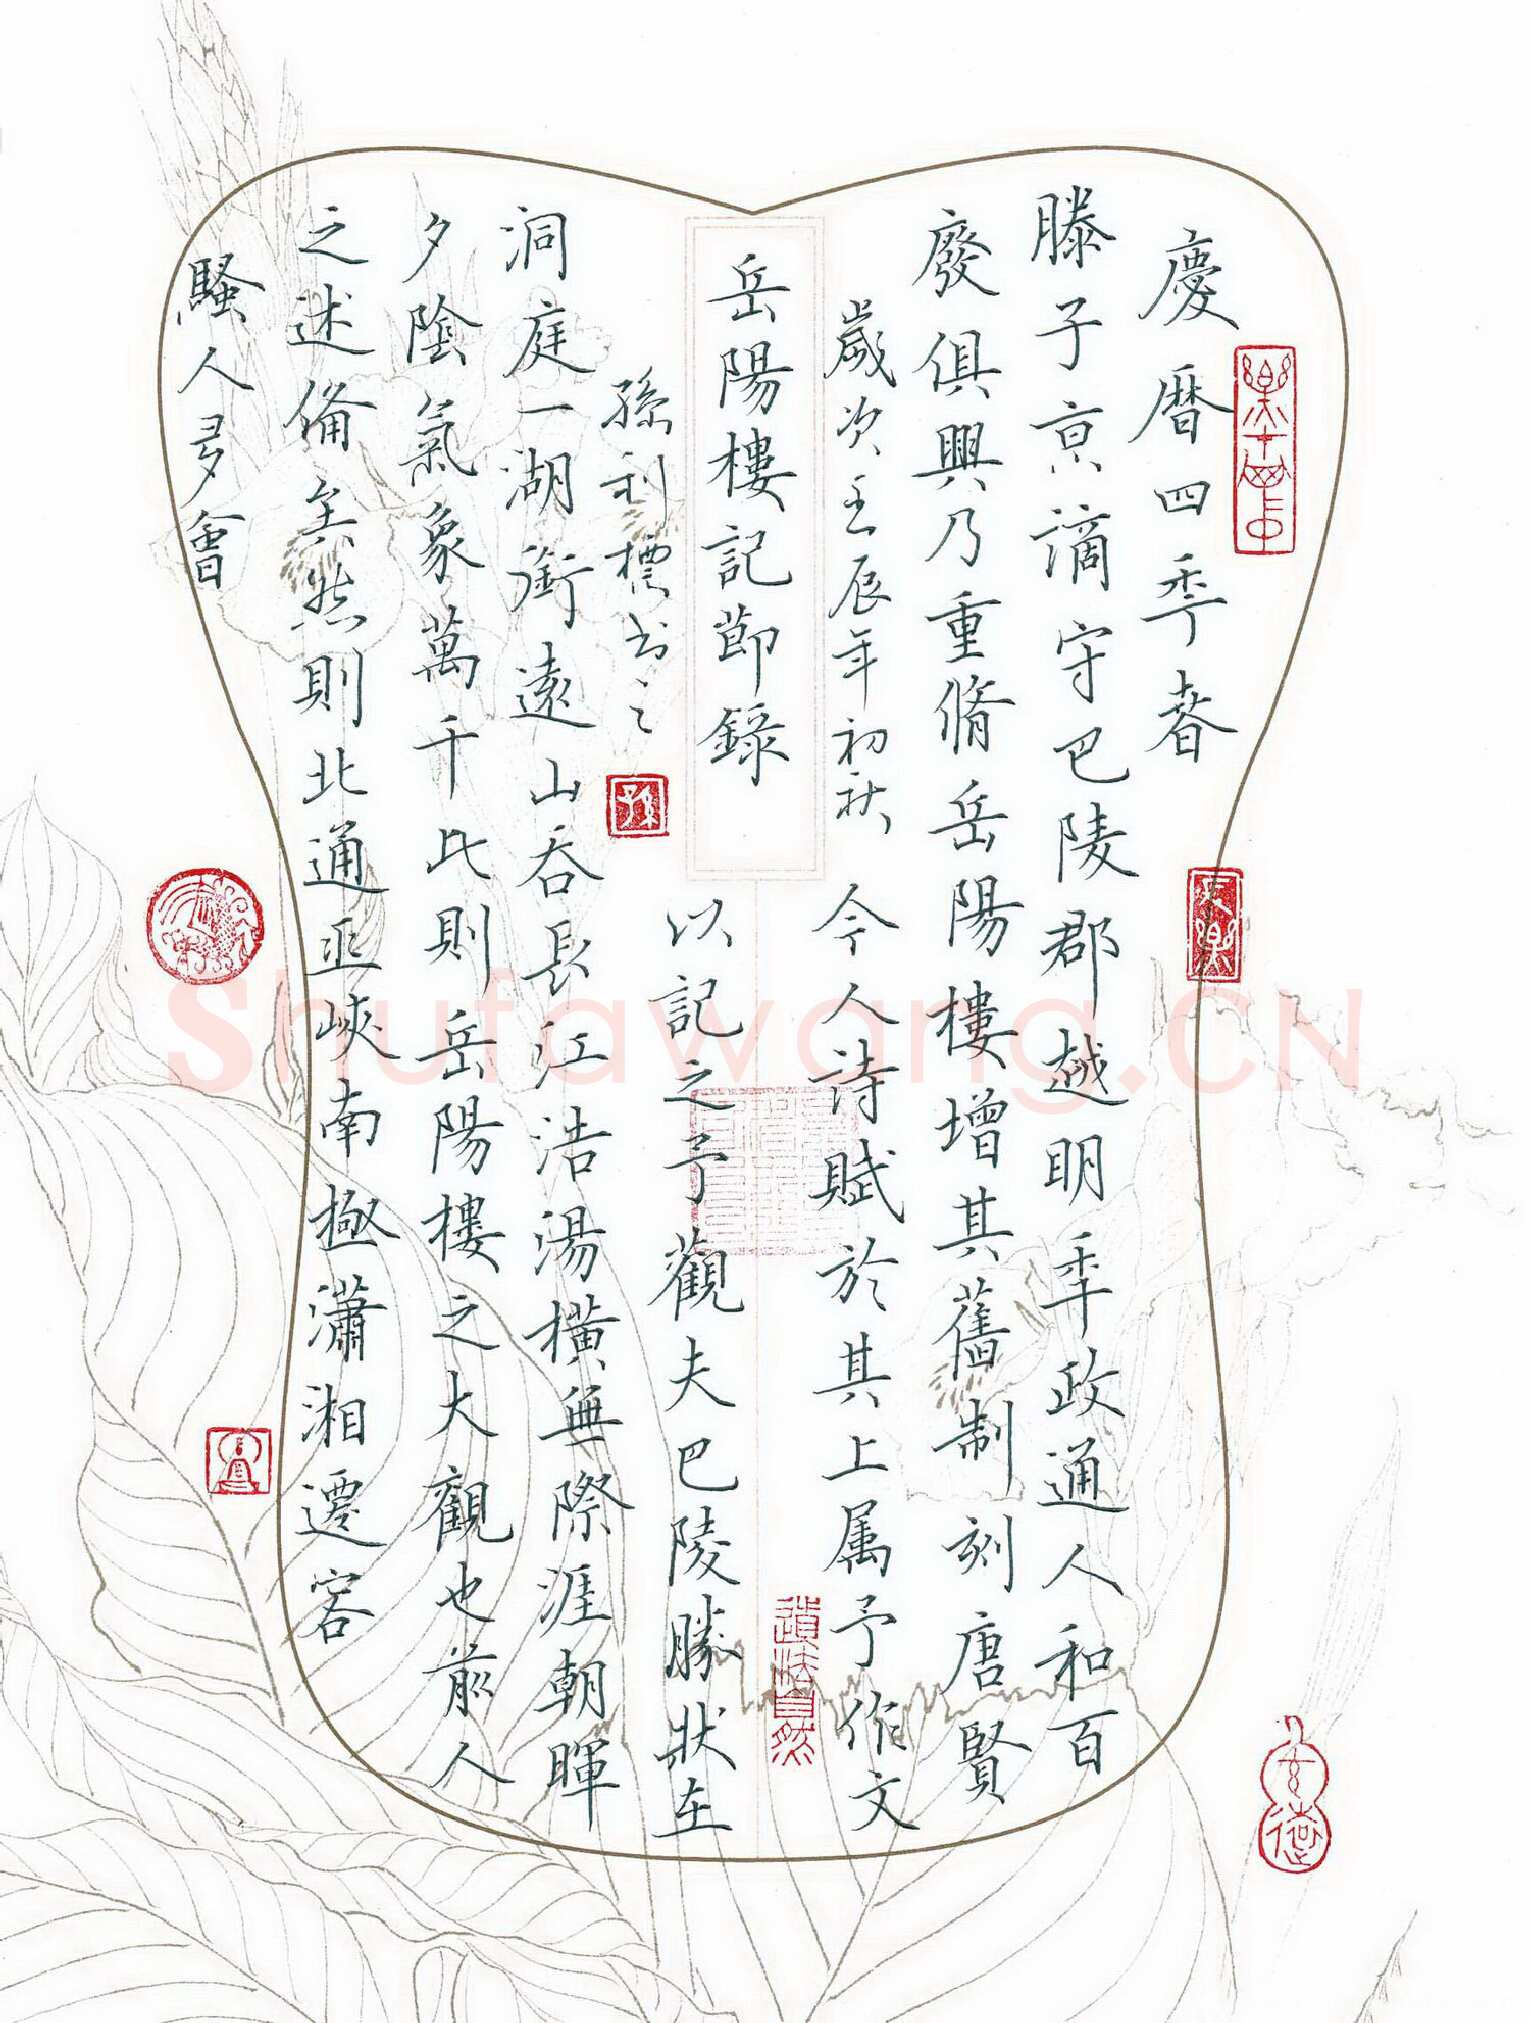 慶曆四秊春
滕子京謫守巴陵郡越明秊政通人和百
廢俱興乃重脩岳陽樓增其舊制刻唐賢
今人詩賦於其上属予作文
以記之予觀夫巴陵勝狀在
洞庭一湖銜遠山吞長江浩湯橫無際涯朝暉
夕陰氣象萬千此則岳陽樓之大觀也前人
之述備矣然則北通巫峽南極瀟湘遷客
騷人多會
岳陽樓記節錄
歲次壬辰年初秋
孫利標书之
孫
道法自然
Shufawang.CN